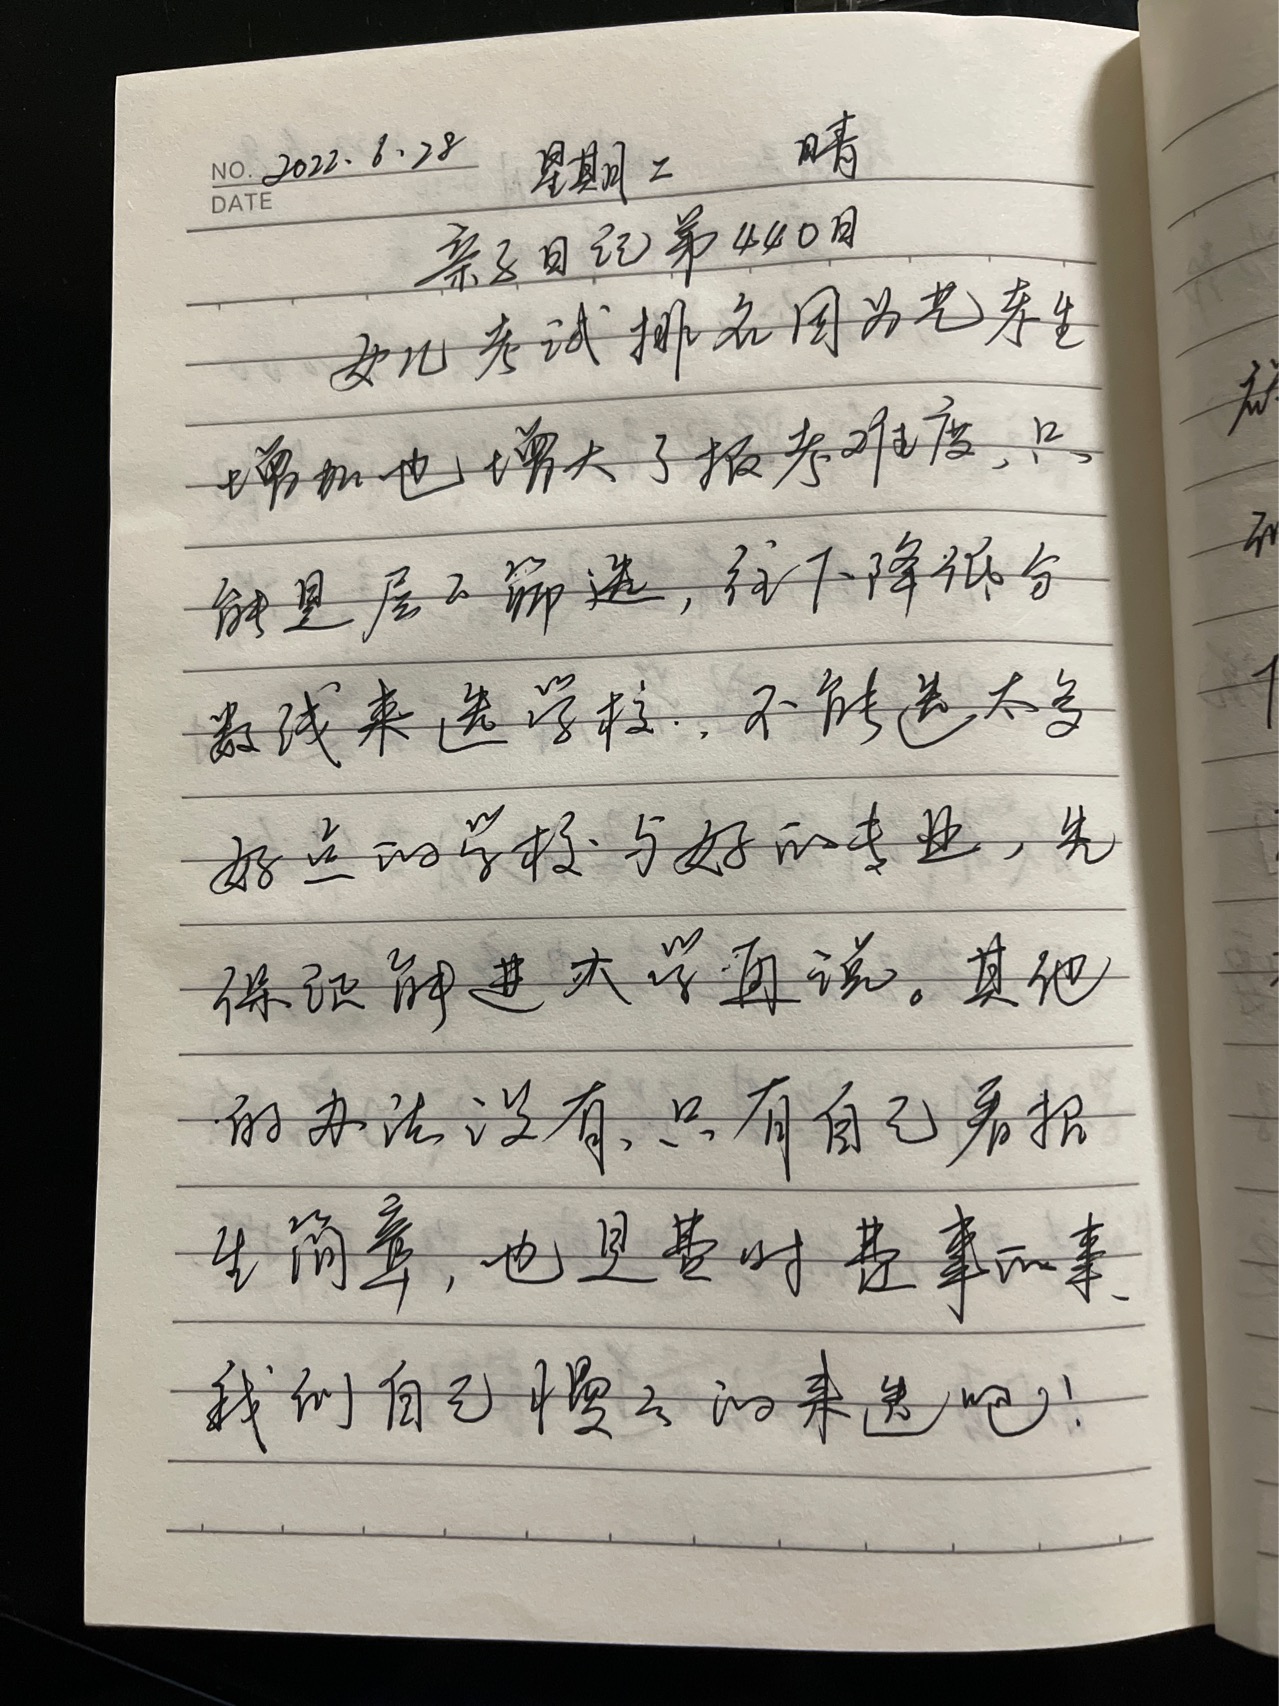 NO. 2022.6.28 星期二 晴
DATE
亲子日记第440日
女儿考试排名因为艺考生
增加也增大了报考难度、只
能是层々筛选，往下降低分
数线来选学校、不能选太多
好点的学校与好的专业，先
保证能进大学再说。其他
的办法没有、只有自己看招
生简章，也是费时费事的事、
我们自己慢々的来选吧！